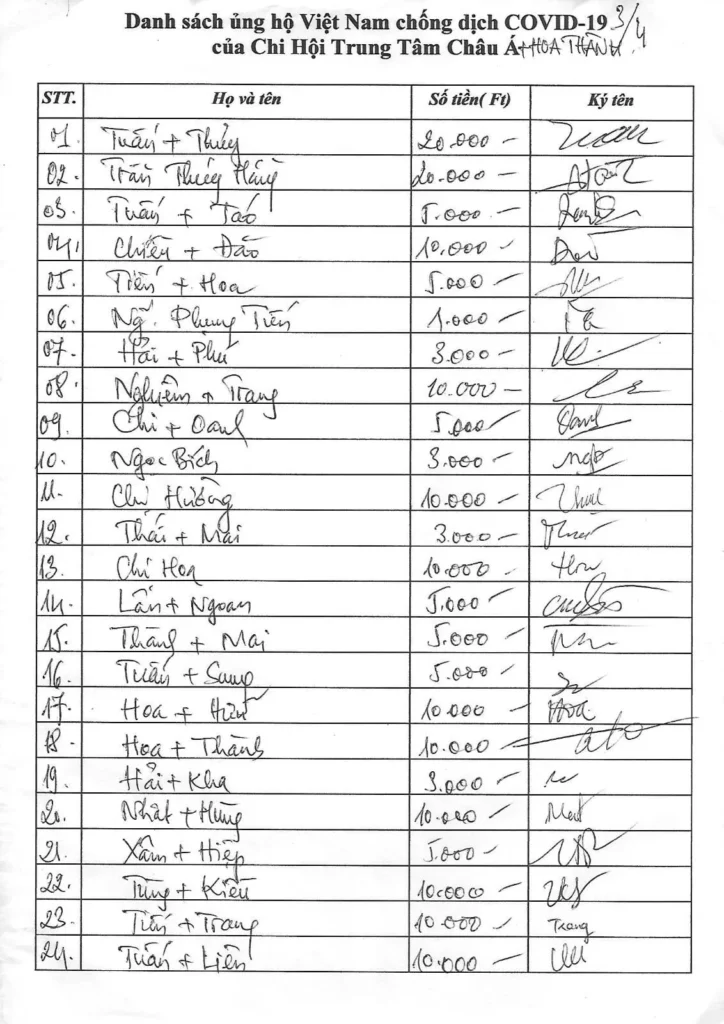 Danh sách ủng hộ Việt Nam chống dịch COVID-19 3/4
của Chi Hội Trung Tâm Châu Á + HOA THÀNH
STT. Họ và tên Số tiền( Ft) Ký tên
01. Tuấn + Thúy 20.000 -
02. Trần Thúy Hằng 20.000 -
03. Tuấn + Táo 5.000 -
04. Chiến + Đào 10.000 -
05. Tiến + Hoa 5.000 -
06. Ng. Phụng Tiến 1.000 -
07. Hải + Phú 3.000 -
08. Nghiêm + Trang 10.000 -
09. Chi + Oanh 5.000 Oanh
10. Ngọc Bích 3.000 -
11. Chị Hường 10.000 -
12. Thái + Mai 3.000 -
13. Chị Hoa 10.000 -
14. Lân + Ngoan 5.000 -
15. Thắng + Mai 5.000 -
16. Tuấn + Sung 5.000 -
17. Hoa + Hiển 10.000 - Hoa
18. Hoa + Thành 10.000
19. Hải + Kha 3.000 -
20. Nhật + Hùng 10.000 -
21. Xâm + Hiệp 5.000 -
22. Tùng + Kiều 10.0000 -
23. Tiến + Trang 10.000 - Trang
24. Tuấn + Liên 10.000 -